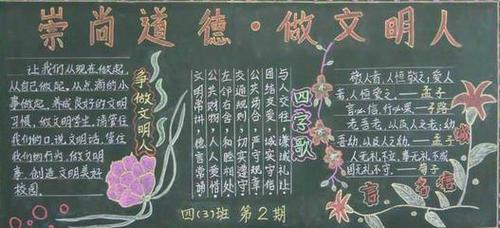 崇尚道德·做文明人
争做文明人
让我们从现在做起,
从自己做起,从点滴的小
事做起,养成良好的文明
习惯,做文明学生,请管住
我们的口,说文明话,管住
我们的行为,做文明
事,创造文明美好
校园。
四字歌
与人交往,谦诚礼让,
团结友爱,诚实守信,
公共场合,严守规章,
交通规则,切实遵守,
左邻右舍,和睦相处,
公共财物,人人爱惜,
文明常讲,德言常诵,
名言
敬人者,人恒敬之;爱人
者,人恒爱之。——孟子
言必信,行必果——子路
老吾老,以及人之老;幼
吾幼,以及人之幼——孟子
人无礼不立,事无礼不成
国无礼不守。——荀子
四(3)班 第2期